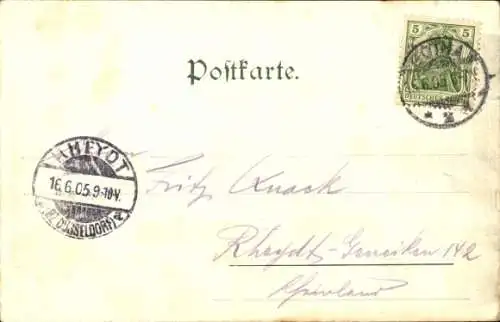 5 5
DEUTSCHES REICH
Postkarte.
RHEYDT
16.6.05.9-10V.
(BZ. DÜSSELDORF)
Fritz Knack
Rheydt-Geneiken 142
Rheinland